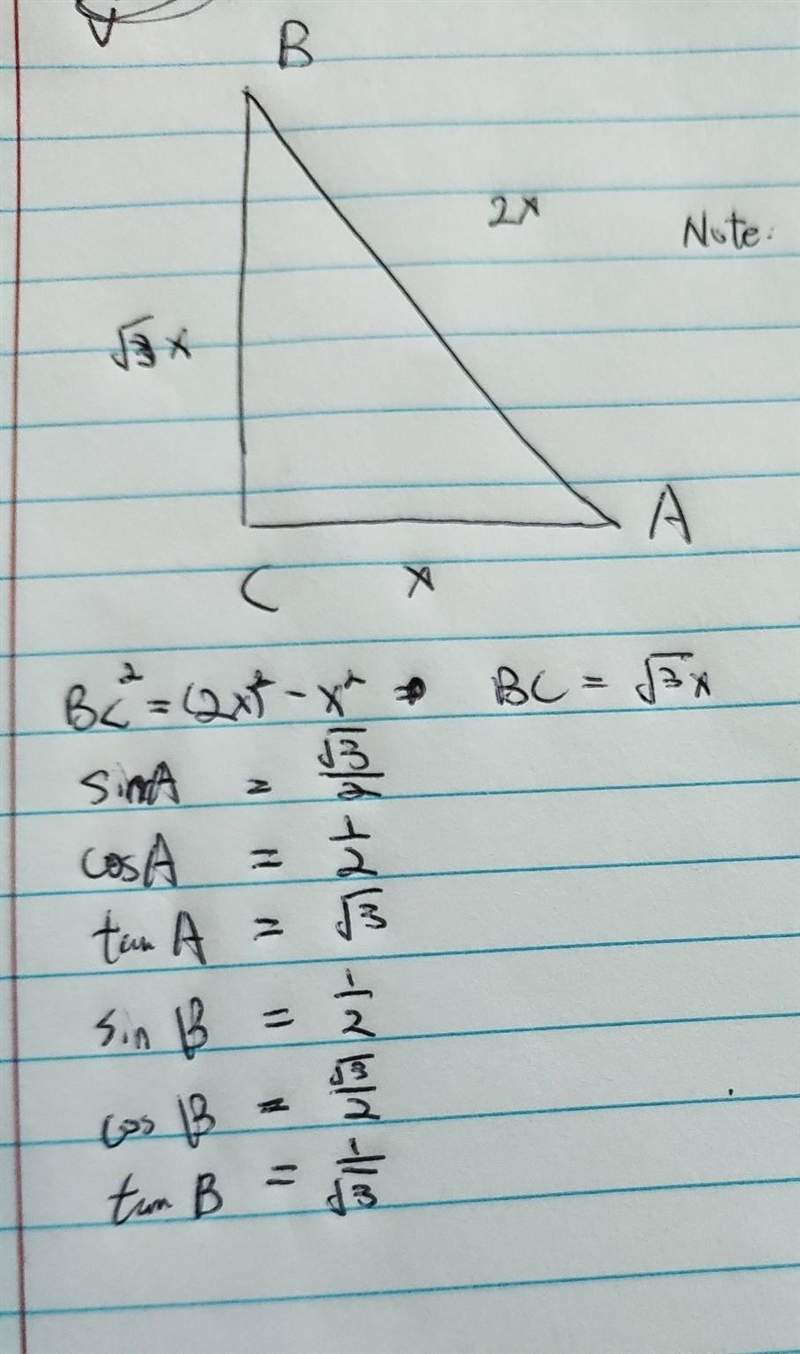 B
2x
Note:
√3 x
A
C
x
BC² = (2x)² - x² → BC = √3 x
sinA = √3/2
cosA = 1/2
tan A = √3
sin B = 1/2
cos B = √3/2
tan B = 1/√3